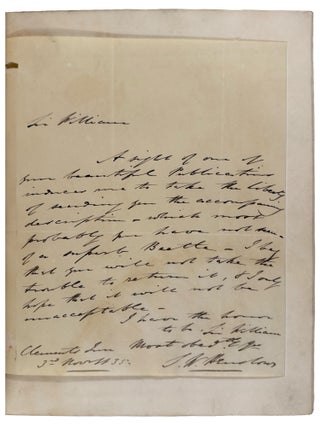 Sir William
A sight of one of
your beautiful Publications
induces me to take the liberty
of sending you the accompang
description - which most
probably you have not seen -
of a superb Beetle - I beg
that you will not take the
trouble to return it, & I only
hope that it will not be
unacceptable -
I have the honor
to be Sir William
Clements Inn Most obedt
3rd Novr 1835 S. W. Henslow